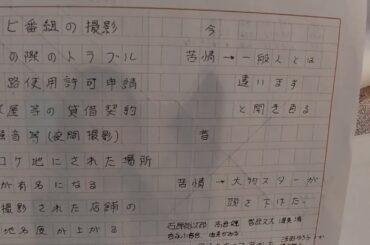 ビ番組の撮影
の際のトラブル
路使用許可申請
屋等の貸借契約
音等(夜間撮影)
ロケ地にされた場所
が有名になる
撮影された店舗の
地名度が上がる
今
苦情→一般人とは
違います
と開き直る
昔
苦情→大物スターが
頭を下げた。
石原裕次郎 高倉健 菅原文太 渥美清